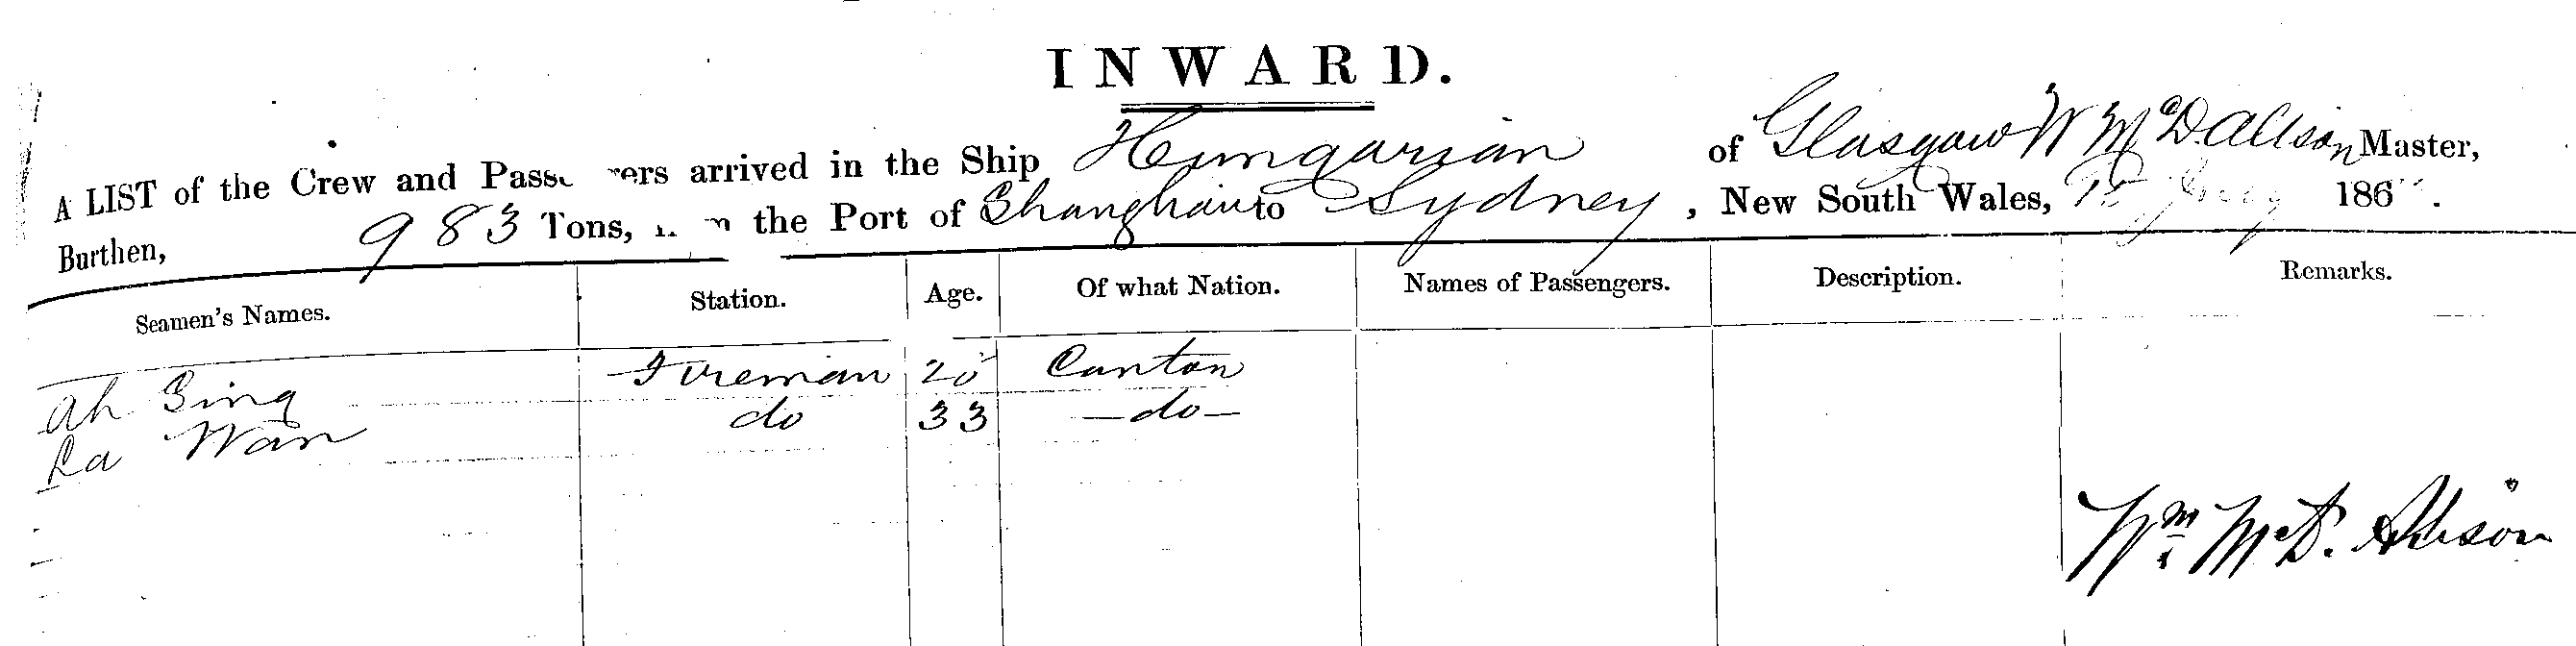 INWARD.
A LIST of the Crew and Passengers arrived in the Ship Hungarian of Glasgow W McD Alison Master,
Burthen, 983 Tons, from the Port of Shanghai to Sydney, New South Wales, 186
Seamen's Names. Station. Age. Of what Nation. Names of Passengers. Description. Remarks.
Ah Sing Fireman 25 Canton
La Wan do 33 —do—
Wm McD. Alison